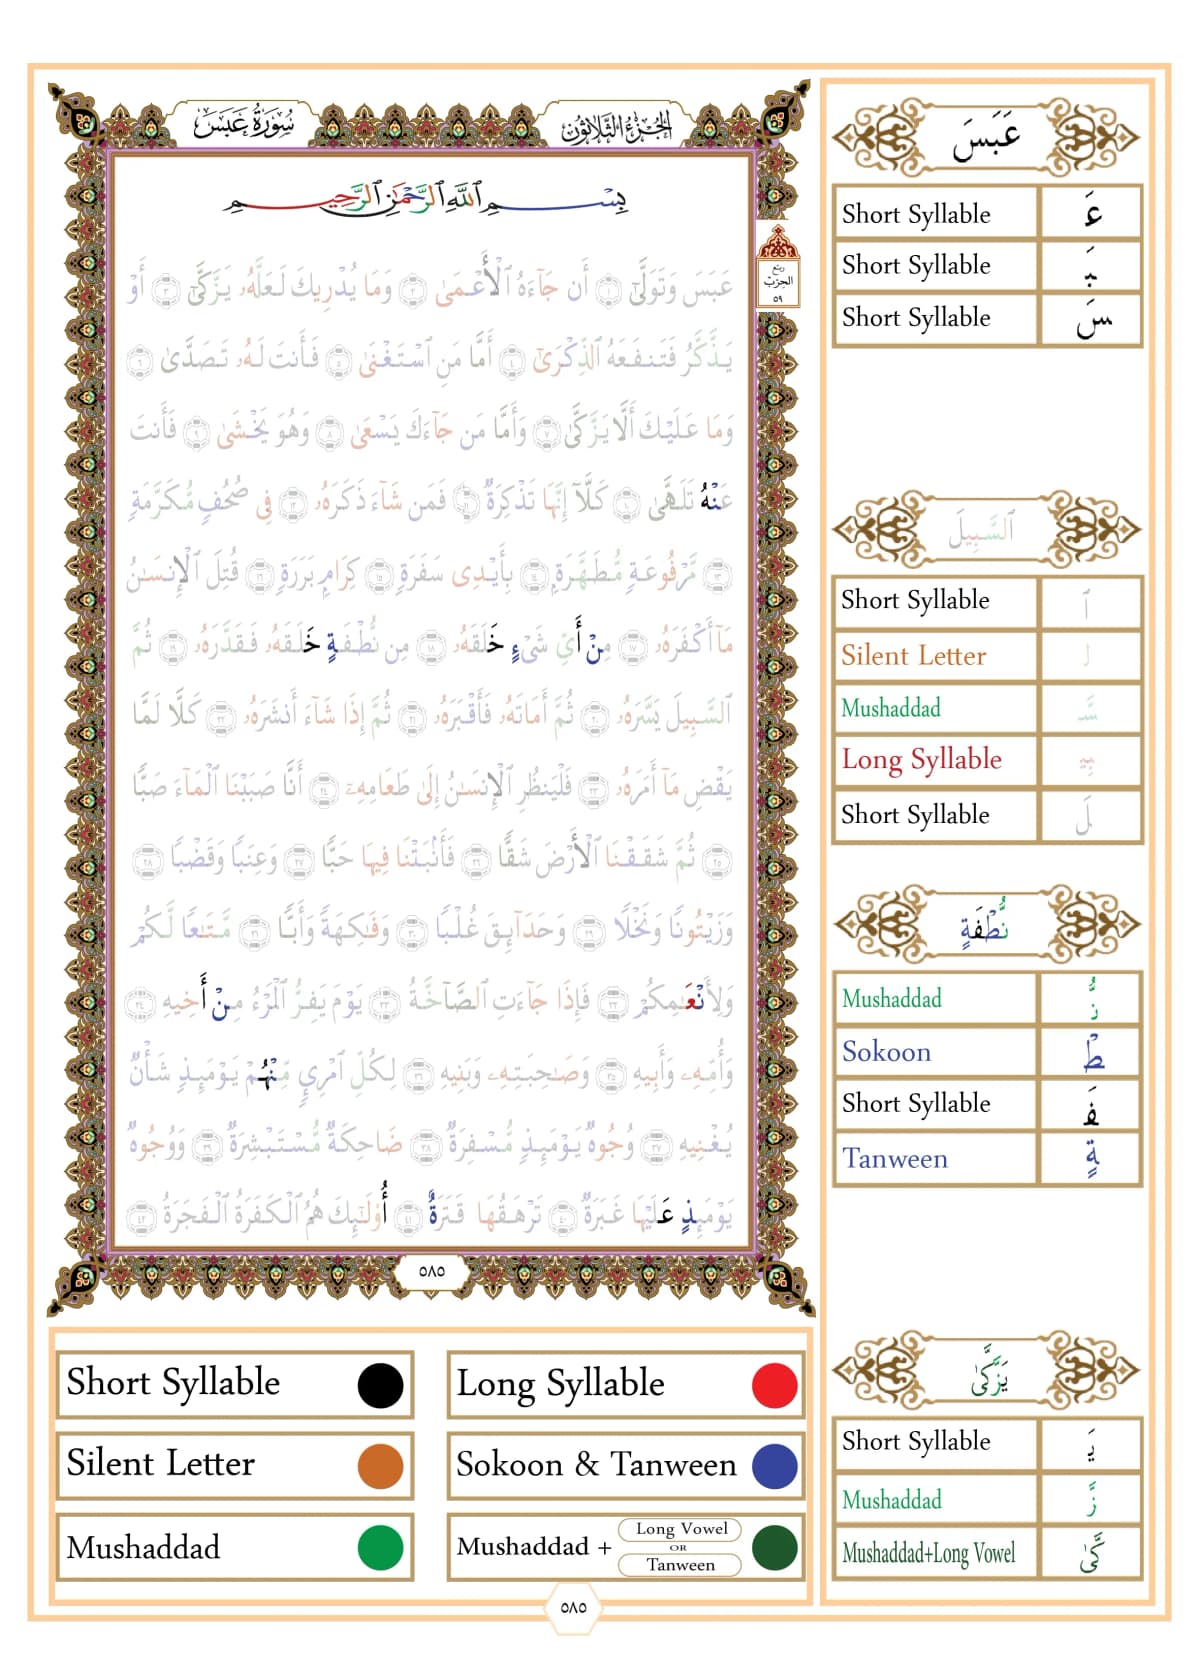 سُورَةُ عَبَسَ
الجُزْءُ الثَّلَاثُونَ
بِسْمِ ٱللَّهِ ٱلرَّحْمَٰنِ ٱلرَّحِيمِ
عَبَسَ وَتَوَلَّىٰٓ ١ أَن جَآءَهُ ٱلْأَعْمَىٰ ٢ وَمَا يُدْرِيكَ لَعَلَّهُۥ يَزَّكَّىٰٓ ٣ أَوْ
يَذَّكَّرُ فَتَنفَعَهُ ٱلذِّكْرَىٰٓ ٤ أَمَّا مَنِ ٱسْتَغْنَىٰ ٥ فَأَنتَ لَهُۥ تَصَدَّىٰ ٦
وَمَا عَلَيْكَ أَلَّا يَزَّكَّىٰ ٧ وَأَمَّا مَن جَآءَكَ يَسْعَىٰ ٨ وَهُوَ يَخْشَىٰ ٩ فَأَنتَ
عَنْهُ تَلَهَّىٰ ١٠ كَلَّآ إِنَّهَا تَذْكِرَةٌ ١١ فَمَن شَآءَ ذَكَرَهُۥ ١٢ فِى صُحُفٍ مُّكَرَّمَةٍ
١٣ مَّرْفُوعَةٍ مُّطَهَّرَةٍۭ ١٤ بِأَيْدِى سَفَرَةٍ ١٥ كِرَامٍۭ بَرَرَةٍ ١٦ قُتِلَ ٱلْإِنسَٰنُ
مَآ أَكْفَرَهُۥ ١٧ مِنْ أَيِّ شَىْءٍ خَلَقَهُۥ ١٨ مِن نُّطْفَةٍ خَلَقَهُۥ فَقَدَّرَهُۥ ١٩ ثُمَّ
ٱلسَّبِيلَ يَسَّرَهُۥ ٢٠ ثُمَّ أَمَاتَهُۥ فَأَقْبَرَهُۥ ٢١ ثُمَّ إِذَا شَآءَ أَنشَرَهُۥ ٢٢ كَلَّا لَمَّا
يَقْضِ مَآ أَمَرَهُۥ ٢٣ فَلْيَنظُرِ ٱلْإِنسَٰنُ إِلَىٰ طَعَامِهِۦٓ ٢٤ أَنَّا صَبَبْنَا ٱلْمَآءَ صَبًّا
٢٥ ثُمَّ شَقَقْنَا ٱلْأَرْضَ شَقًّا ٢٦ فَأَنۢبَتْنَا فِيهَا حَبًّا ٢٧ وَعِنَبًا وَقَضْبًا ٢٨
وَزَيْتُونًا وَنَخْلًا ٢٩ وَحَدَآئِقَ غُلْبًا ٣٠ وَفَٰكِهَةً وَأَبًّا ٣١ مَّتَٰعًا لَّكُمْ
وَلِأَنْعَٰمِكُمْ ٣٢ فَإِذَا جَآءَتِ ٱلصَّآخَّةُ ٣٣ يَوْمَ يَفِرُّ ٱلْمَرْءُ مِنْ أَخِيهِ ٣٤
وَأُمِّهِۦ وَأَبِيهِ ٣٥ وَصَٰحِبَتِهِۦ وَبَنِيهِ ٣٦ لِكُلِّ ٱمْرِئٍ مِّنْهُمْ يَوْمَئِذٍ شَأْنٌ
يُغْنِيهِ ٣٧ وُجُوهٌ يَوْمَئِذٍ مُّسْفِرَةٌ ٣٨ ضَاحِكَةٌ مُّسْتَبْشِرَةٌ ٣٩ وَوُجُوهٌ
يَوْمَئِذٍ عَلَيْهَا غَبَرَةٌ ٤٠ تَرْهَقُهَا قَتَرَةٌ ٤١ أُو۟لَٰٓئِكَ هُمُ ٱلْكَفَرَةُ ٱلْفَجَرَةُ ٤٢
٥٨٥
ربع
الحزب
٥٩
عَبَسَ
Short Syllable عَ
Short Syllable بَ
Short Syllable سَ
ٱلسَّبِيلَ
Short Syllable ٱ
Silent Letter ل
Mushaddad سَّ
Long Syllable بِي
Short Syllable لَ
نُّطْفَةٍ
Mushaddad نُّ
Sokoon طْ
Short Syllable فَ
Tanween ةٍ
يَزَّكَّىٰ
Short Syllable يَ
Mushaddad زَّ
Mushaddad+Long Vowel كَّىٰ
Short Syllable
Long Syllable
Silent Letter
Sokoon & Tanween
Mushaddad
Mushaddad + Long Vowel OR Tanween
٥٨٥